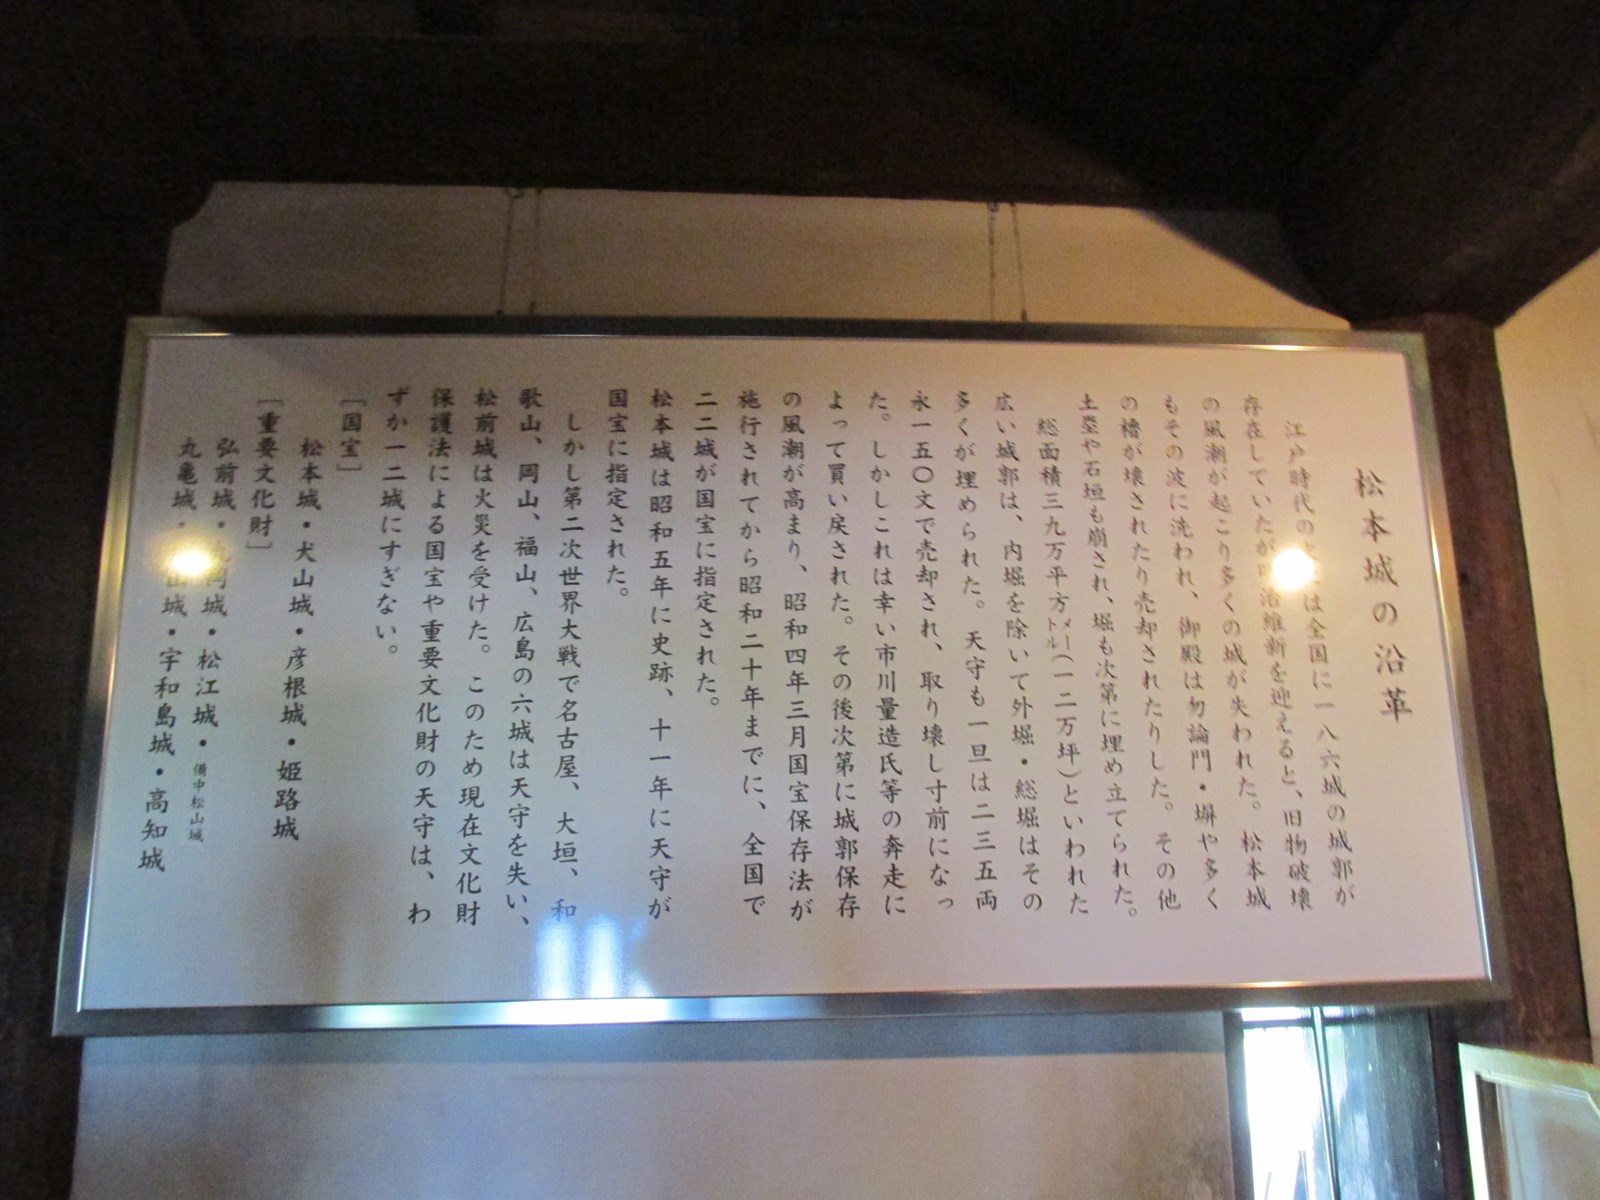 松本城の沿革
江戸時代の は全国に一八六城の城郭が
存在していたが明治維新を迎えると、旧物破壊
の風潮が起こり多くの城が失われた。松本城
もその波に洗われ、御殿は勿論門・塀や多く
の櫓が壊されたり売却されたりした。その他
土塁や石垣も崩され、堀も次第に埋め立てられた。
総面積三九万平方メートル(一二万坪)といわれた
広い城郭は、内堀を除いて外堀・総堀はその
多くが埋められた。天守も一旦は二三五両
永一五〇文で売却され、取り壊し寸前になっ
た。しかしこれは幸い市川量造氏等の奔走に
よって買い戻された。その後次第に城郭保存
の風潮が高まり、昭和四年三月国宝保存法が
施行されてから昭和二十年までに、全国で
二二城が国宝に指定された。
松本城は昭和五年に史跡、十一年に天守が
国宝に指定された。
しかし第二次世界大戦で名古屋、大垣、和
歌山、岡山、福山、広島の六城は天守を失い、
松前城は火災を受けた。このため現在文化財
保護法による国宝や重要文化財の天守は、わ
ずか一二城にすぎない。
[国宝]
松本城・犬山城・彦根城・姫路城
[重要文化財]
弘前城・丸岡城・松江城・備中松山城
丸亀城・ 山城・宇和島城・高知城